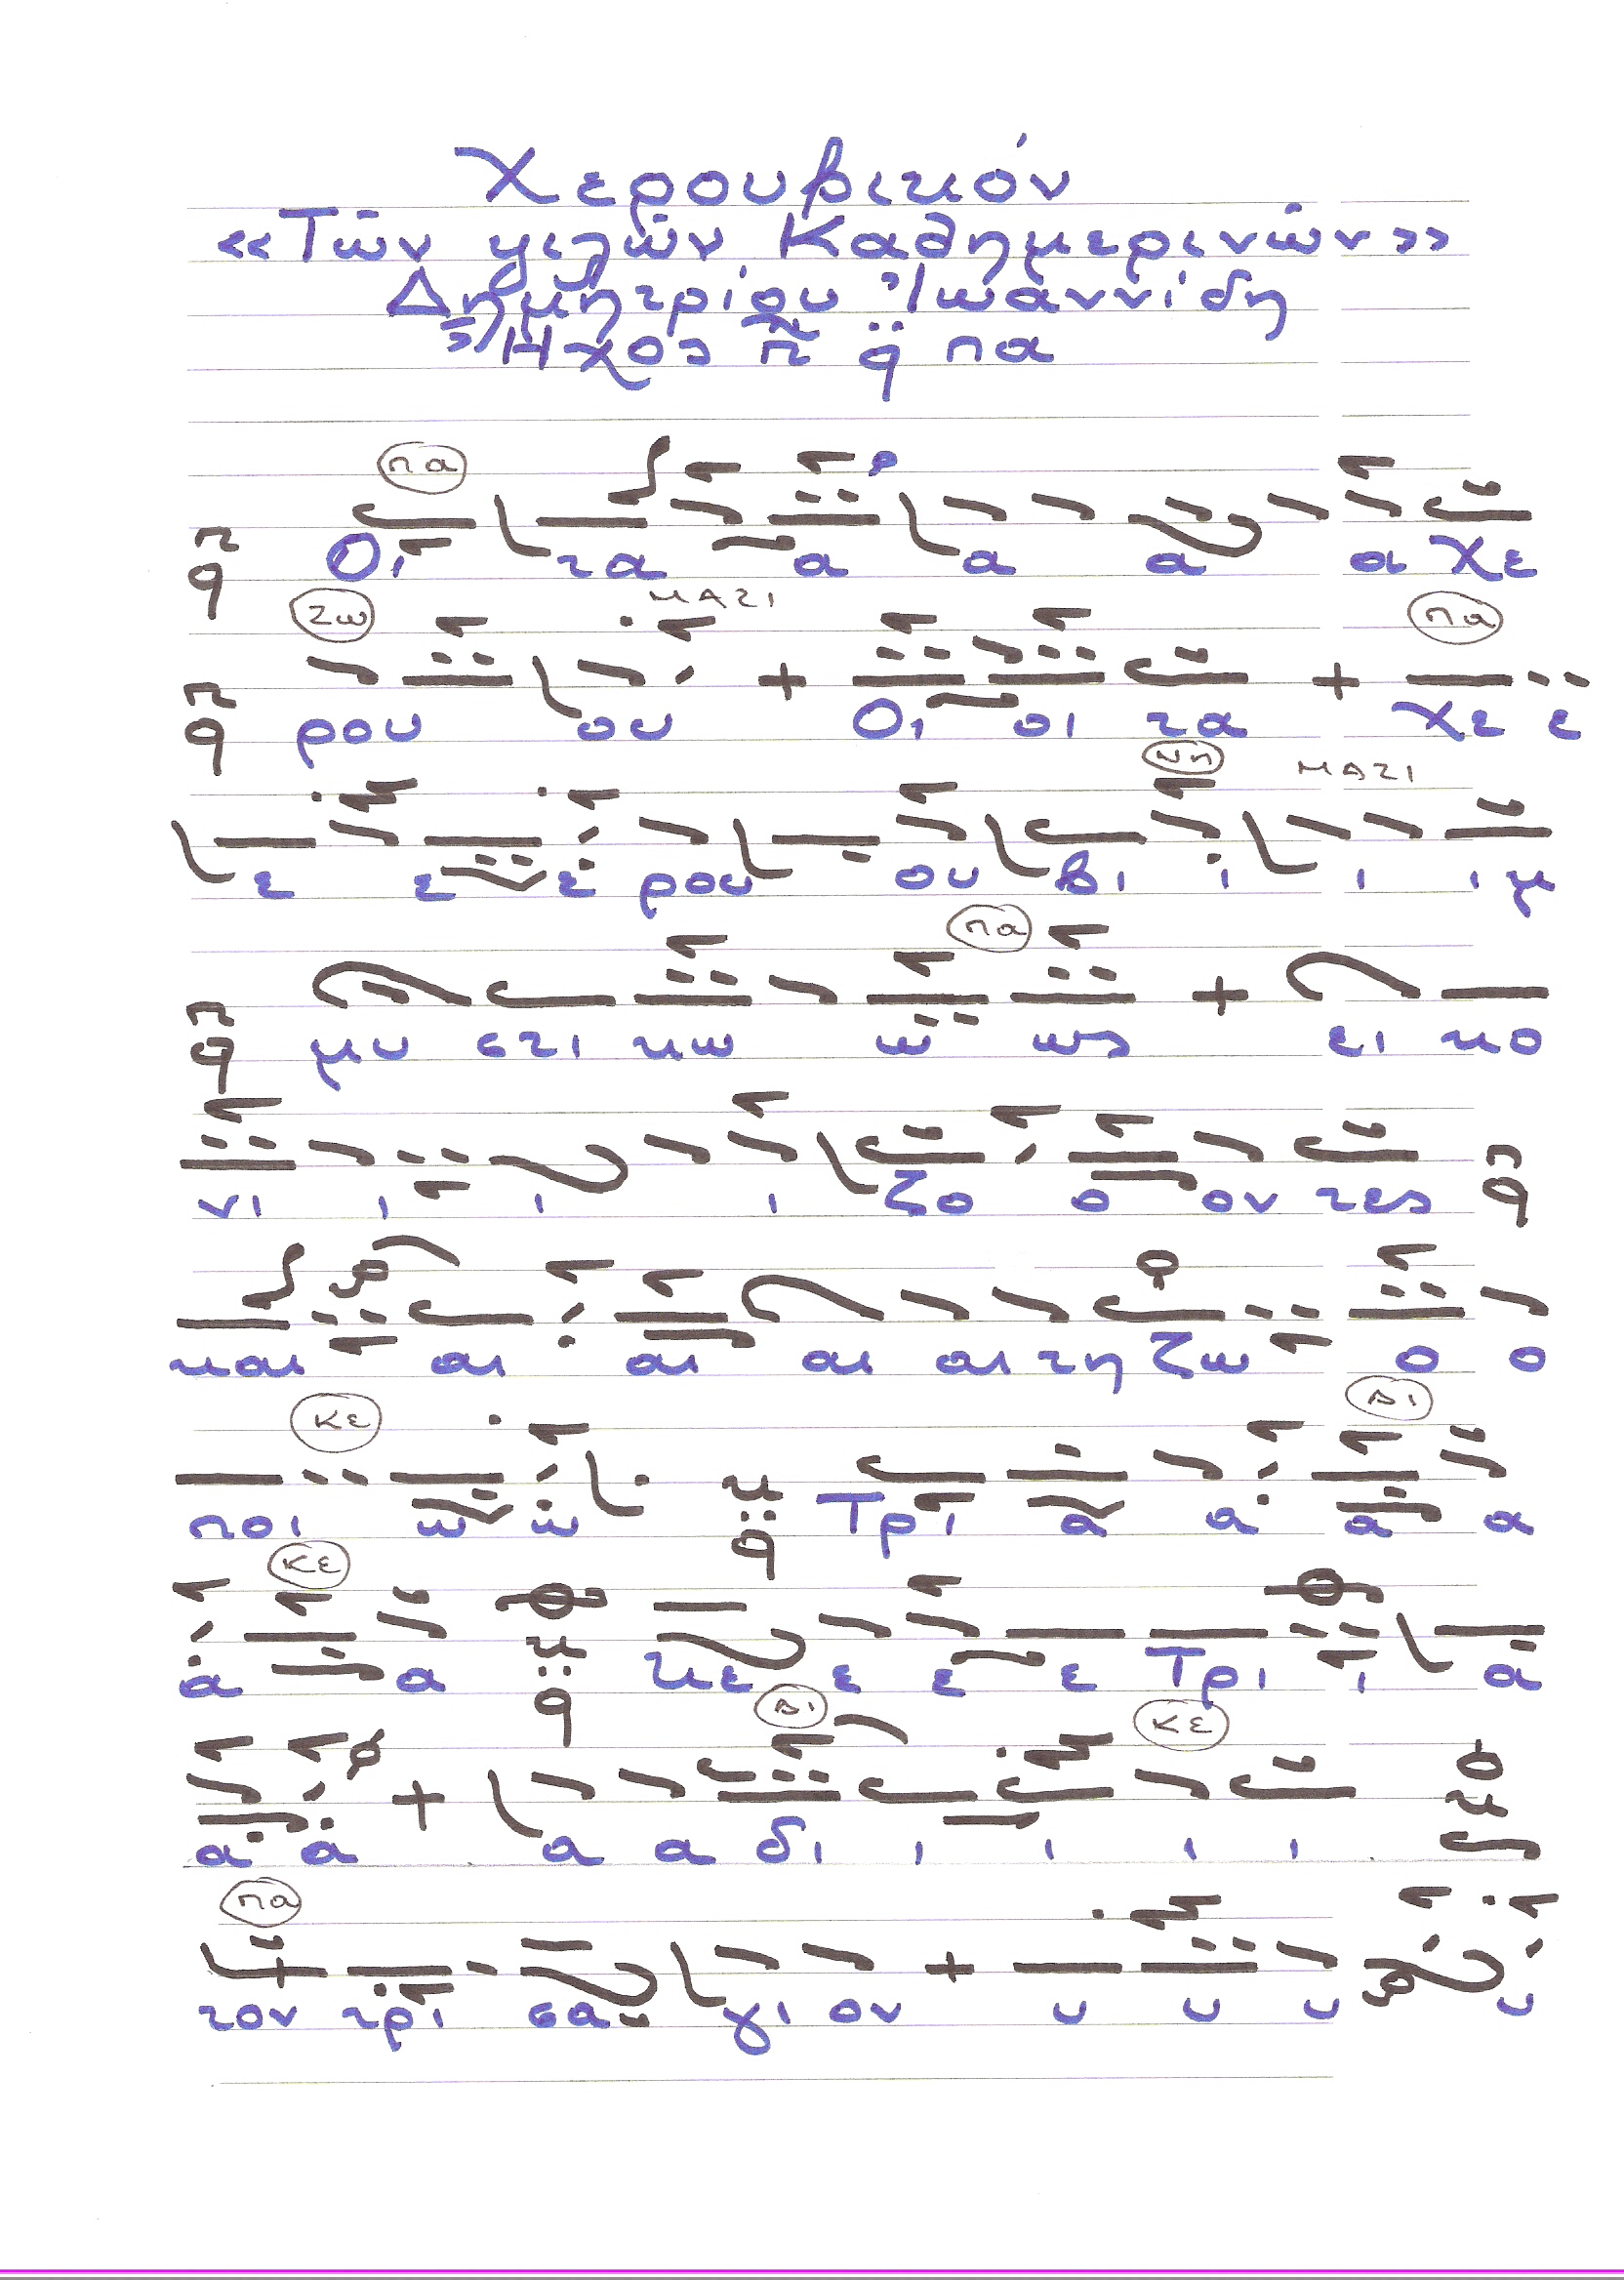 Χερουβικόν
«Τῶν ψιλῶν Καθημερινῶν»
Δημητρίου Ἰωαννίδη
Ἦχος π q πα
πα
Οι τα α α α α χε
Ζω ΜΑΖΙ πα
ρου ου Οι οι τα χε ε
Νη ΜΑΖΙ
ε ε ε ρου ου βι ι ι ι μ
πα
μυ στι κω ω ως ει κο
νι ι ι ι ζο ο ον τες
και αι αι αι αι τη ζω ο ο
Κε Βι
ποι ω ω Τρι α α α α
Κε
α α κε ε ε ε Τρι ι α
Βι Κε
α α α α δι ι ι ι ι
πα
τον τρι σα γι ον υ υ υ υ